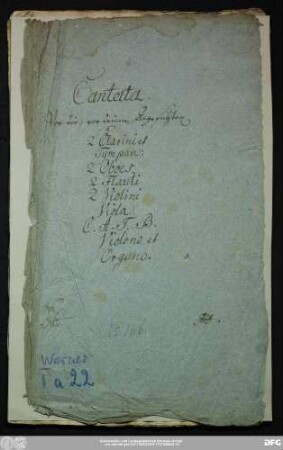 Cantata
Vor dir, vor deinem Angesichte
2 Clarini et
Tympan:
2 Oboes
2 Flauti
2 Violini
Viola
C. A. T. B.
Violone et
Organo.
No 166
Werner
T a 22
DFG